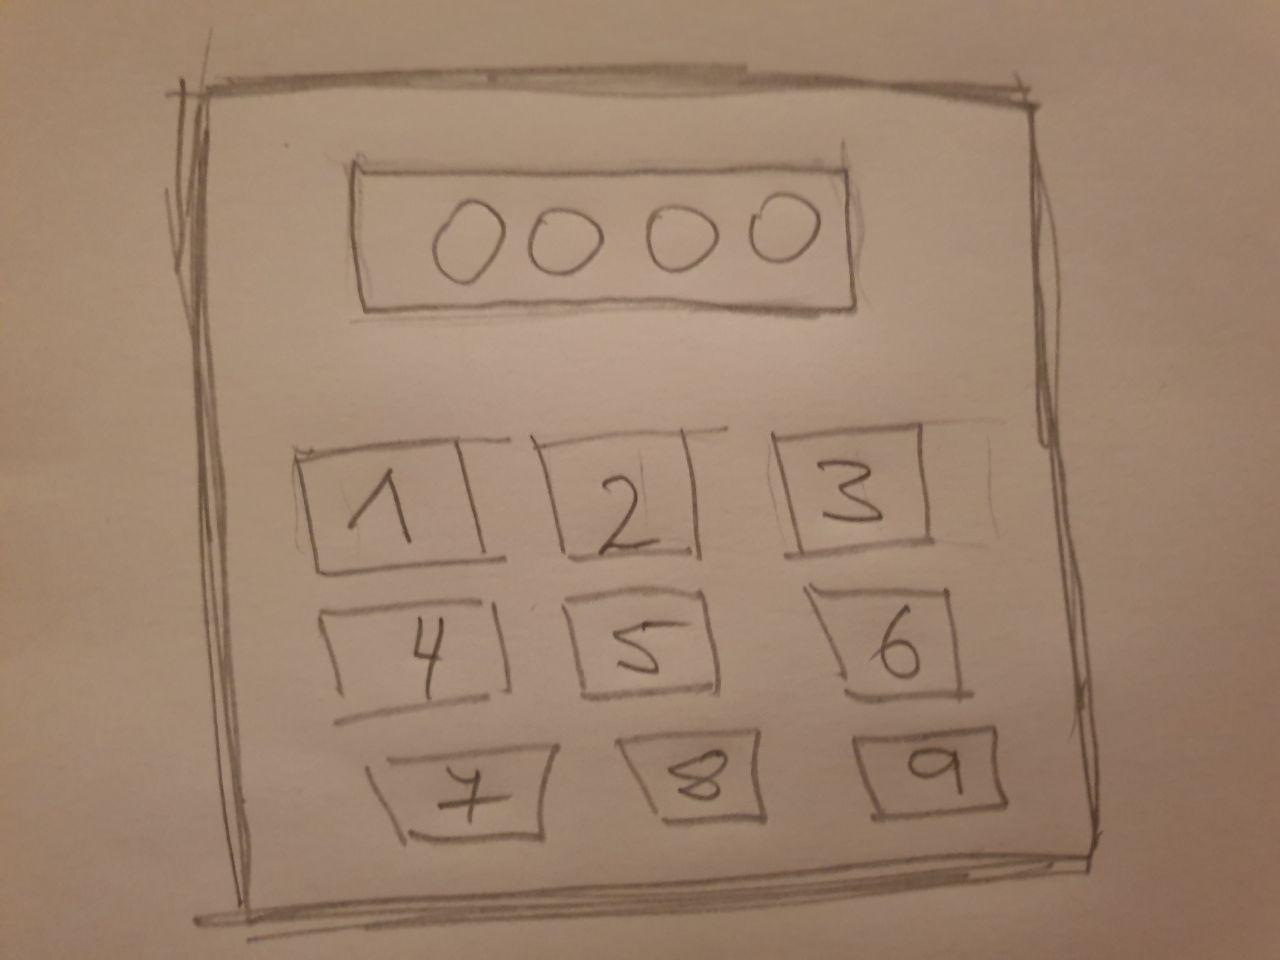 0000
1 2 3
4 5 6
7 8 9